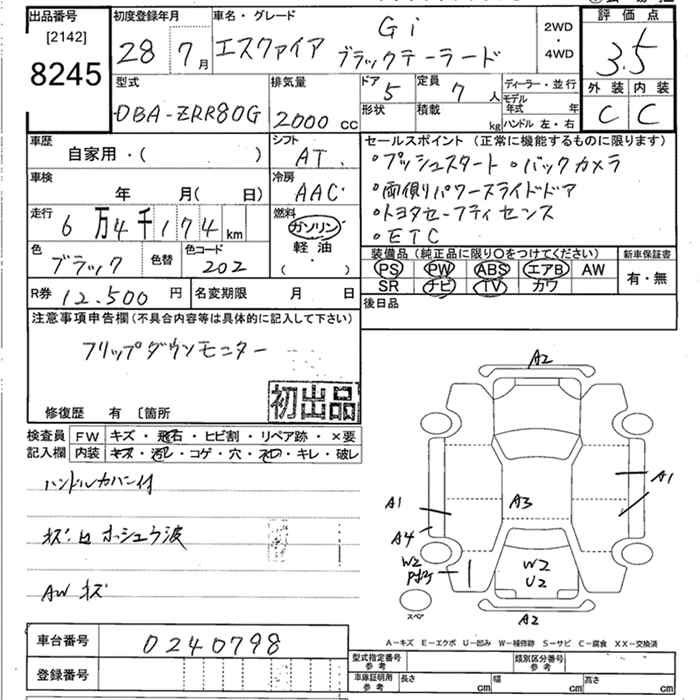 出品番号
[2142]
8245
初度登録年月
28年7月
車名・グレード
Gi
エスクァイア ブラックテーラード
2WD
・
4WD
評価点
3.5
外装 内装
C C
型式
DBA-ZRR80G
排気量
2000cc
ドア 5
形状
定員 7人
積載 kg
ディーラー・並行
モデル年式 年
ハンドル 左・右
車歴
自家用・( )
シフト
AT
車検
年 月( 日)
冷房
AAC
走行
6万4千174km
燃料
ガソリン
軽油
( )
色
ブラック
色替
色コード
202
R券 12,500円
名変期限 月 日
セールスポイント(正常に機能するものに限ります)
・プッシュスタート ・バックカメラ
・両側パワースライドドア
・トヨタセーフティセンス
・ETC
装備品(純正品に限り〇をつけてください)
新車保証書
PS PW ABS エアB AW
SR ナビ TV カワ
有・無
後日品
注意事項申告欄(不具合内容等は具体的に記入して下さい)
フリップダウンモニター
初出品
修復歴 有 〔箇所
検査員記入欄
FW キズ・飛石・ヒビ割・リペア跡・×要
内装 キズ・汚レ・コゲ・穴・・キレ・破レ
ハンドルカバー付
AW キズ
A2
A1
A1
A3
A4
W2
W2
U2
A2
スペア
A-キズ E-エクボ U-凹み W-補修跡 S-サビ C-腐食 XX-交換済
車台番号
0240798
登録番号
型式指定番号
参考
類別区分番号
参考
車庫証明用
参考
長さ cm
幅 cm
高さ cm